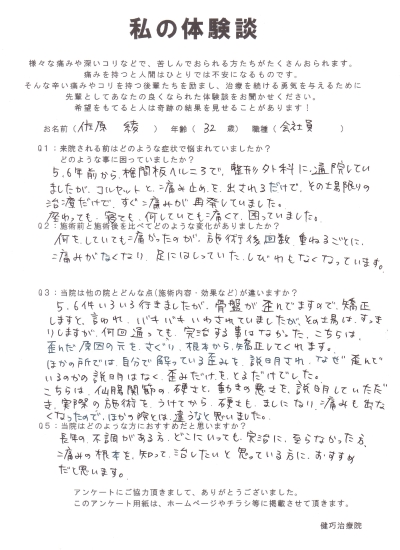 私の体験談
様々な痛みや深いコリなどで、苦しんでおられる方たちがたくさんおられます。
痛みを持つと人間はひとりでは不安になるものです。
そんな辛い痛みやコリを持つ後輩たちを励まし、治療を続ける勇気を与えるために
先輩としてあなたの良くなられた体験談をお聞かせください。
希望をもてると人は奇跡の結果を見せることがあります！
お名前（佐原 綾　）　年齢（ 32 歳）　職種（会社員　）
Q1：来院される前はどのような症状で悩まれていましたか？
どのような事に困っていましたか？
5,6年前から、椎間板ヘルニアで、整形外科に通院してい
ましたが、コルセットと、痛み止めを、出されるだけで、その場限りの
治療だけで、すぐ痛みが再発していました。
座わっても、寝ても、何していても痛くて、困っていました。
Q2：施術前と施術後を比べてどのような変化がありましたか？
何をしていても痛かったのが、施術後回数重ねるごとに、
痛みがなくなり、足にはしっていた、しびれもなくなっています。
Q3：当院は他の院とどんな点(施術内容・効果など)が違いますか？
5,6件いろいろ行きましたが、骨盤が歪んでますので、矯正
しますと、言われ、バキバキいわされていましたが、その場は、すっき
りしますが、何回通っても、完治する事はなかった。こちらは、
歪んだ原因の元を、さぐり、根本から、矯正してくれます。
ほかの所では、自分で解っている歪みを、説明され、なぜ歪んで
いるのかの説明はなく、歪みだけを、とるだけでした。
こちらは、仙腸関節の、硬さと、動きの悪さを、説明していただ
き、実際の施術を、うけてから、硬さも、ましになり、痛みも出な
くなったので、ほかの院とは、違うなと思いました。
Q5：当院はどのような方におすすめだと思いますか？
長年の不調がある方、どこにいっても、完治に、至らなかった方、
痛みの根本を、知って、治したいと思っている方に、おすすめ
だと思います。
アンケートにご協力頂きまして、ありがとうございました。
このアンケート用紙は、ホームページやチラシ等に掲載させて頂きます。
健巧治療院